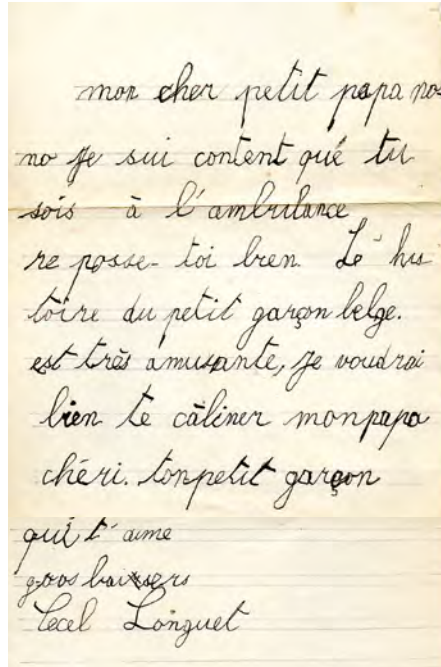 mon cher petit papa no-
no je sui content que tu
sois à l'ambulance
re posse-toi bien. Lé his
toire du petit garçon belge.
est très amusante, je voudrai
bien te câliner monpapa
chéri. tonpetit garçon
qui t'aime
gros baisers
Cecel Longuet